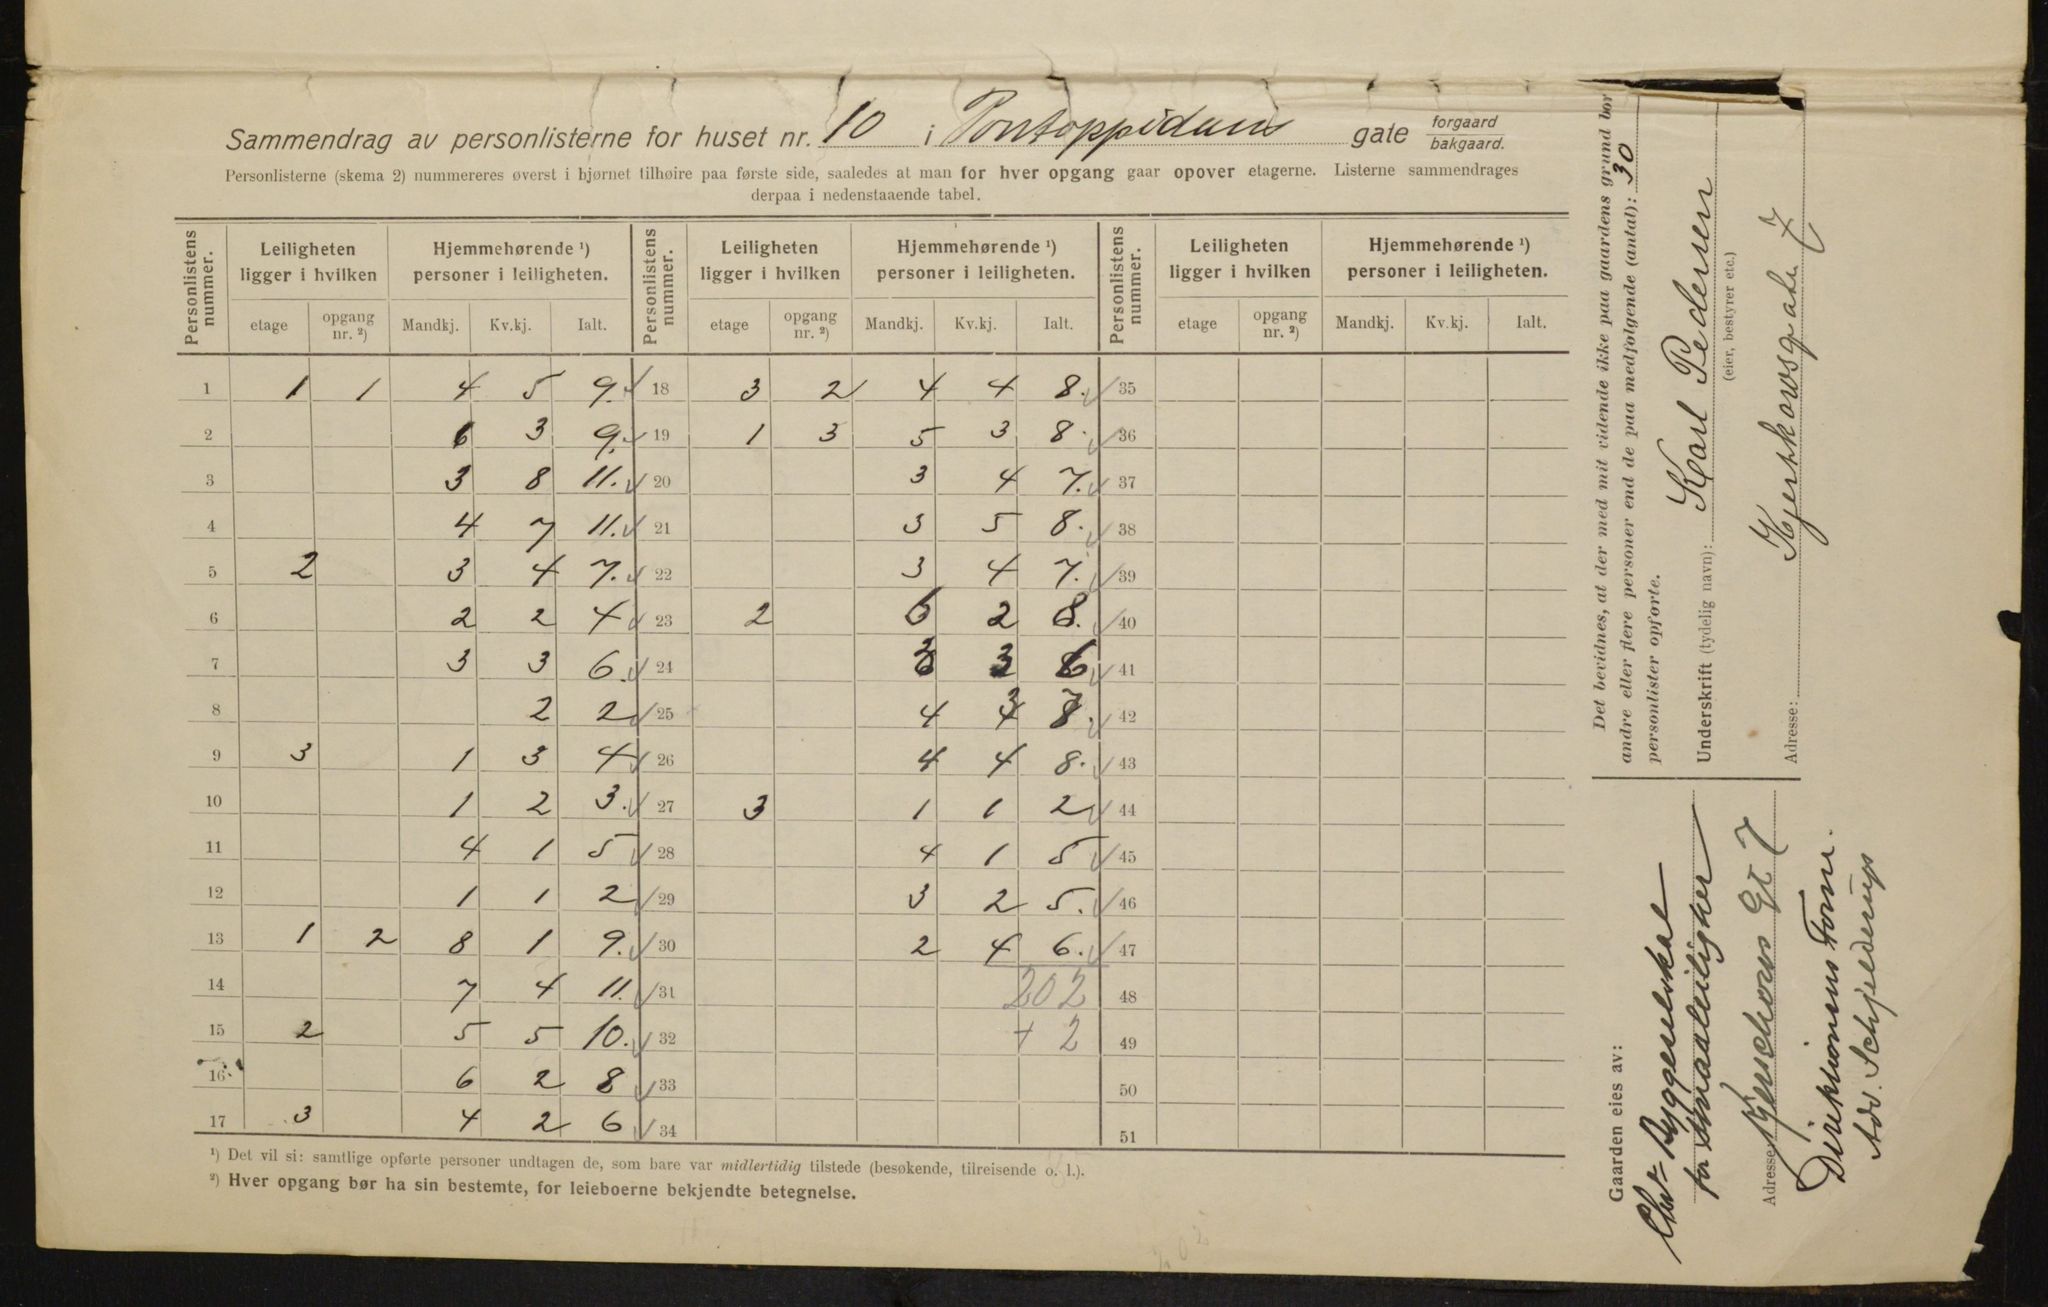 Sammendrag av personlisterne for huset nr. 10 i Pontoppidans gate forgaard bakgaard.
Personlisterne (skema 2) nummereres øverst i hjørnet tilhøire paa første side, saaledes at man for hver opgang gaar opover etagerne. Listerne sammendrages
derpaa i nedenstaaende tabel.
Personlistens nummer. Leiligheten ligger i hvilken Hjemmehørende ¹) personer i leiligheten. Personlistens nummer. Leiligheten ligger i hvilken Hjemmehørende ¹) personer i leiligheten. Personlistens nummer. Leiligheten ligger i hvilken Hjemmehørende ¹) personer i leiligheten.
etage opgang nr. ²) Mandkj. Kv.kj. Ialt. etage opgang nr. ²) Mandkj. Kv.kj. Ialt. etage opgang nr. ²) Mandkj. Kv.kj. Ialt.
1 1 1 4 5 9. 18 3 2 4 4 8. 35
2 6 3 9. 19 1 3 5 3 8. 36
3 3 8 11. 20 3 4 7. 37
4 4 7 11. 21 3 5 8. 38
5 2 3 4 7. 22 3 4 7. 39
6 2 2 4 23 2 6 2 8. 40
7 3 3 6. 24 3 3 6 41
8 2 2 25 4 3 7. 42
9 3 1 3 4 26 4 4 8. 43
10 1 2 3. 27 3 1 1 2 44
11 4 1 5 28 4 1 5 45
12 1 1 2 29 3 2 5. 46
13 1 2 8 1 9. 30 2 4 6. 47
14 7 4 11. 31 202 48
15 2 5 5 10. 32 + 2 49
16 6 2 8 33 50
17 3 4 2 6 34 51
¹) Det vil si: samtlige opførte personer undtagen de, som bare var midlertidig tilstede (besøkende, tilreisende o. l.).
²) Hver opgang bør ha sin bestemte, for leieboerne bekjendte betegnelse.
Det bevidnes, at der med mit vidende ikke paa gaardens grund bor
andre eller flere personer end de paa medfølgende (antal): 30
personlister opførte.
Underskrift (tydelig navn): Karl Pedersen
(eier, bestyrer etc.)
Adresse: Kjerkowsgate 7
Gaarden eies av:
Chra Byggeselskal
for Smaaleiligheter
Adresse Kjerschows Gt 7
Direktionens Form.
Adv. Schjelderup